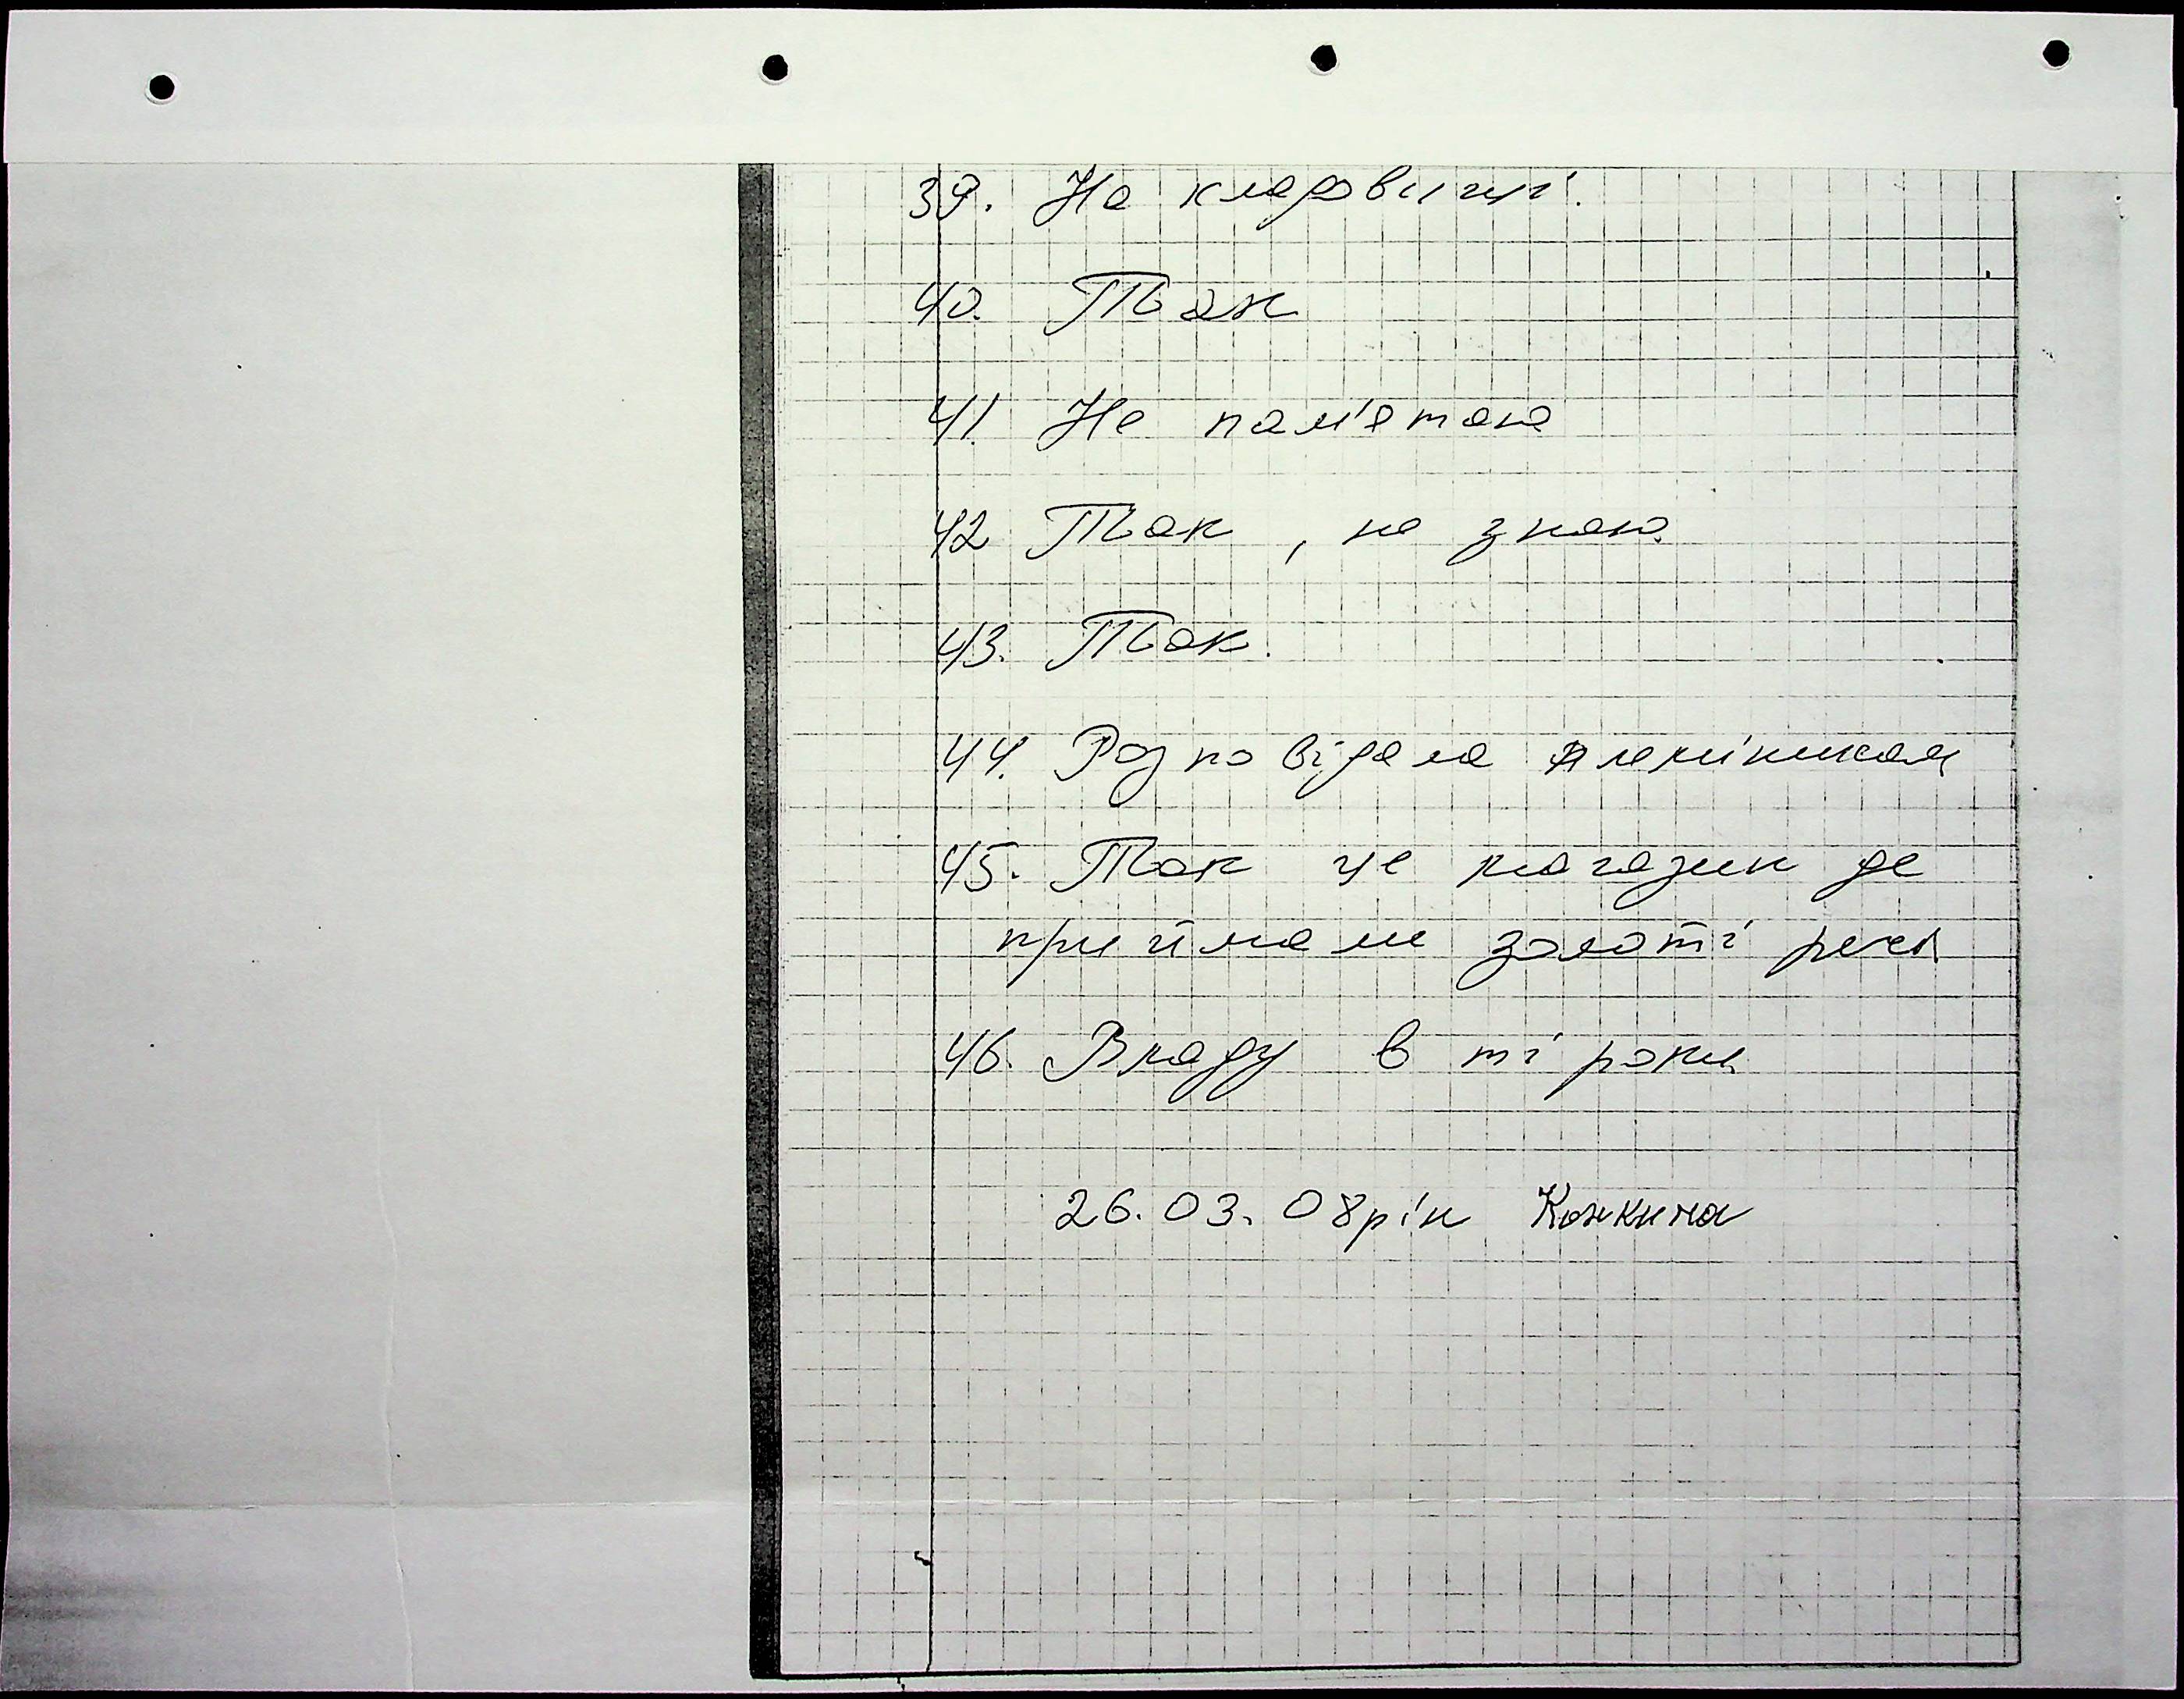 39. На кладовищі.
40. Так
41. Не пам'ятаю
42 Так, не знаю.
43. Так.
44. Розповідала племінникам
45. Так це магазин де
приймали золоті речи
46. Владу в ті роки
26.03.08рік